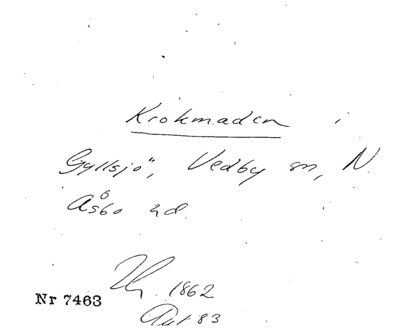 Krokmaden i
Gyllsjö, Vedby sn, N.
Åsbo hd.
1862
Nr 7463
83